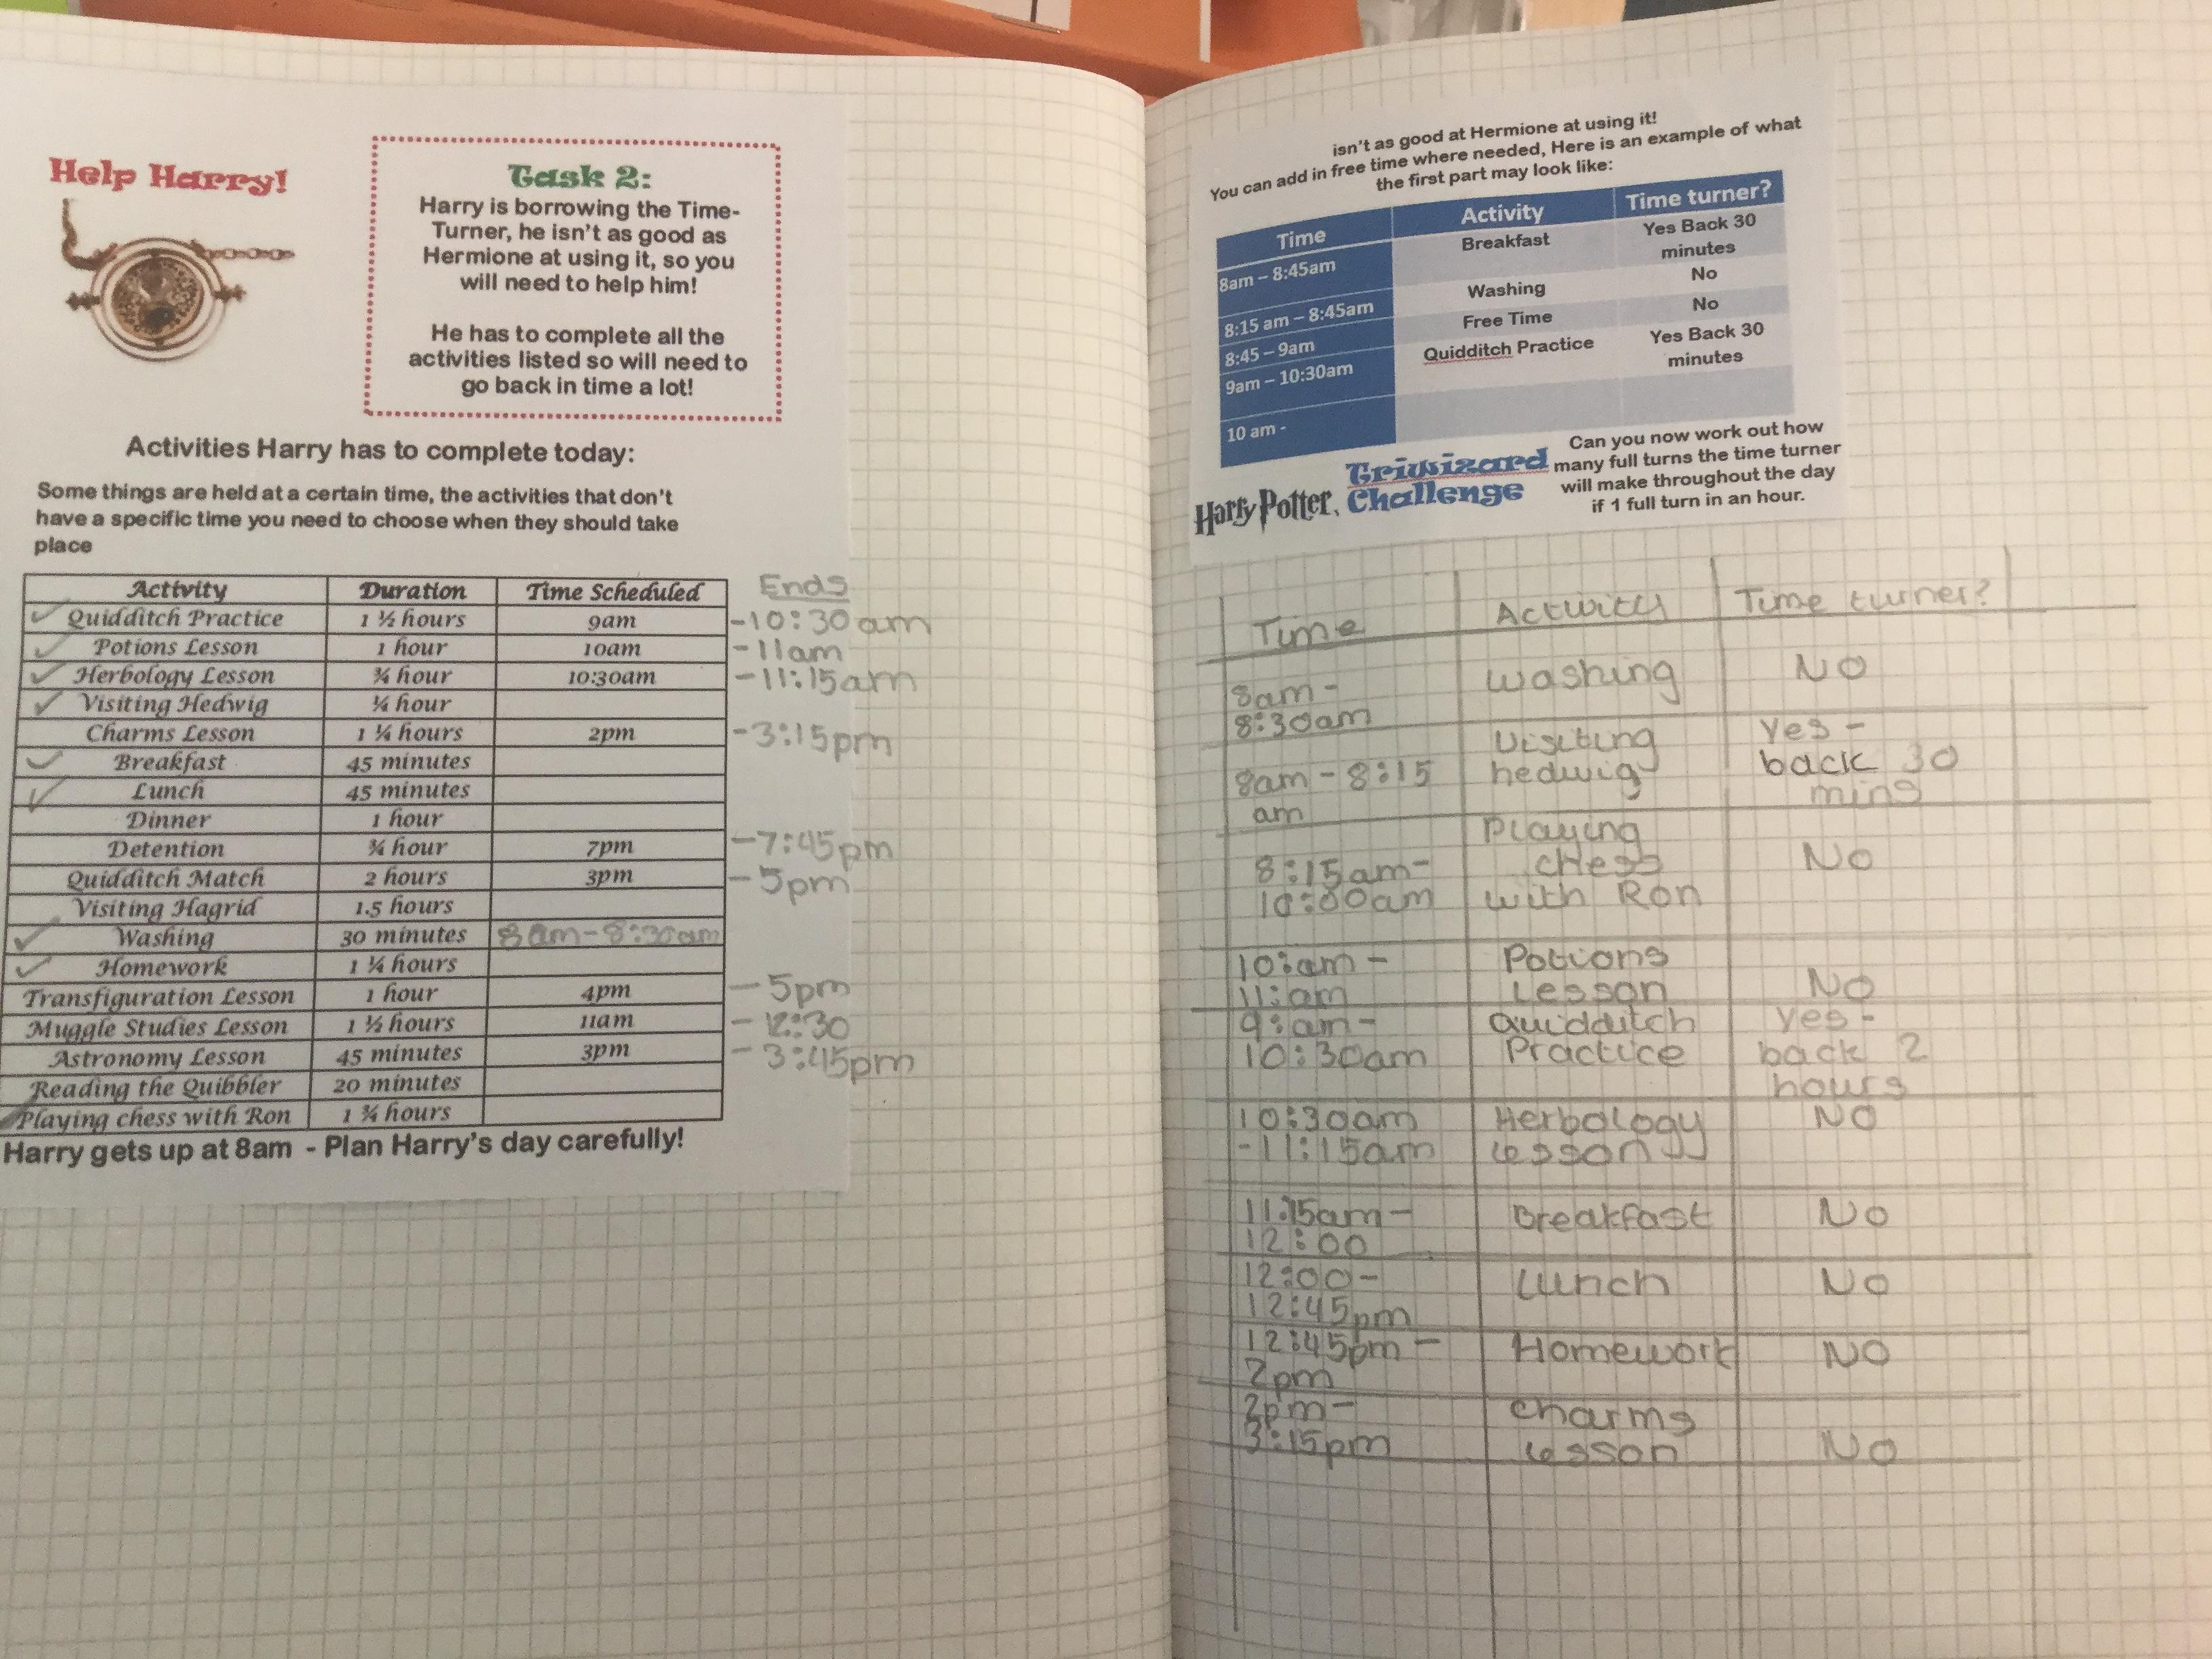 Help Harry!
Task 2:
Harry is borrowing the Time-
Turner, he isn't as good as
Hermione at using it, so you
will need to help him!
He has to complete all the
activities listed so will need to
go back in time a lot!
Activities Harry has to complete today:
Some things are held at a certain time, the activities that don't
have a specific time you need to choose when they should take
place
Activity Duration Time Scheduled Ends
Quidditch Practice 1 ½ hours 9am -10:30am
Potions Lesson 1 hour 10am -11am
Herbology Lesson ¾ hour 10:30am -11:15am
Visiting Hedwig ¼ hour
Charms Lesson 1 ¼ hours 2pm -3:15pm
Breakfast 45 minutes
Lunch 45 minutes
Dinner 1 hour
Detention ¾ hour 7pm -7:45pm
Quidditch Match 2 hours 3pm -5pm
Visiting Hagrid 1.5 hours
Washing 30 minutes 8am-8:30am
Homework 1 ¼ hours
Transfiguration Lesson 1 hour 4pm -5pm
Muggle Studies Lesson 1 ½ hours 11am -12:30
Astronomy Lesson 45 minutes 3pm -3:45pm
Reading the Quibbler 20 minutes
Playing chess with Ron 1 ¾ hours
Harry gets up at 8am - Plan Harry's day carefully!
isn't as good at Hermione at using it!
You can add in free time where needed, Here is an example of what
the first part may look like:
Time Activity Time turner?
8am – 8:45am Breakfast Yes Back 30
minutes
8:15 am – 8:45am Washing No
8:45 – 9am Free Time No
9am – 10:30am Quidditch Practice Yes Back 30
minutes
10 am -
Harry Potter, Triwizard
Challenge
Can you now work out how
many full turns the time turner
will make throughout the day
if 1 full turn in an hour.
Time Activity Time turner?
8am - Washing NO
8:30am
8am - 8:15 Visiting Yes -
am hedwig back 30
mins
8:15am- Playing NO
10:00am chess
with Ron
10:am - Potions NO
11:am Lesson
9:am- Quidditch Yes -
10:30am Practice back 2
hours
10:30am Herbology NO
-11:15am Lesson
11:15am- Breakfast NO
12:00
12:00- Lunch NO
12:45pm
12:45pm - Homework NO
2pm
2pm- Charms
3:15pm Lesson NO